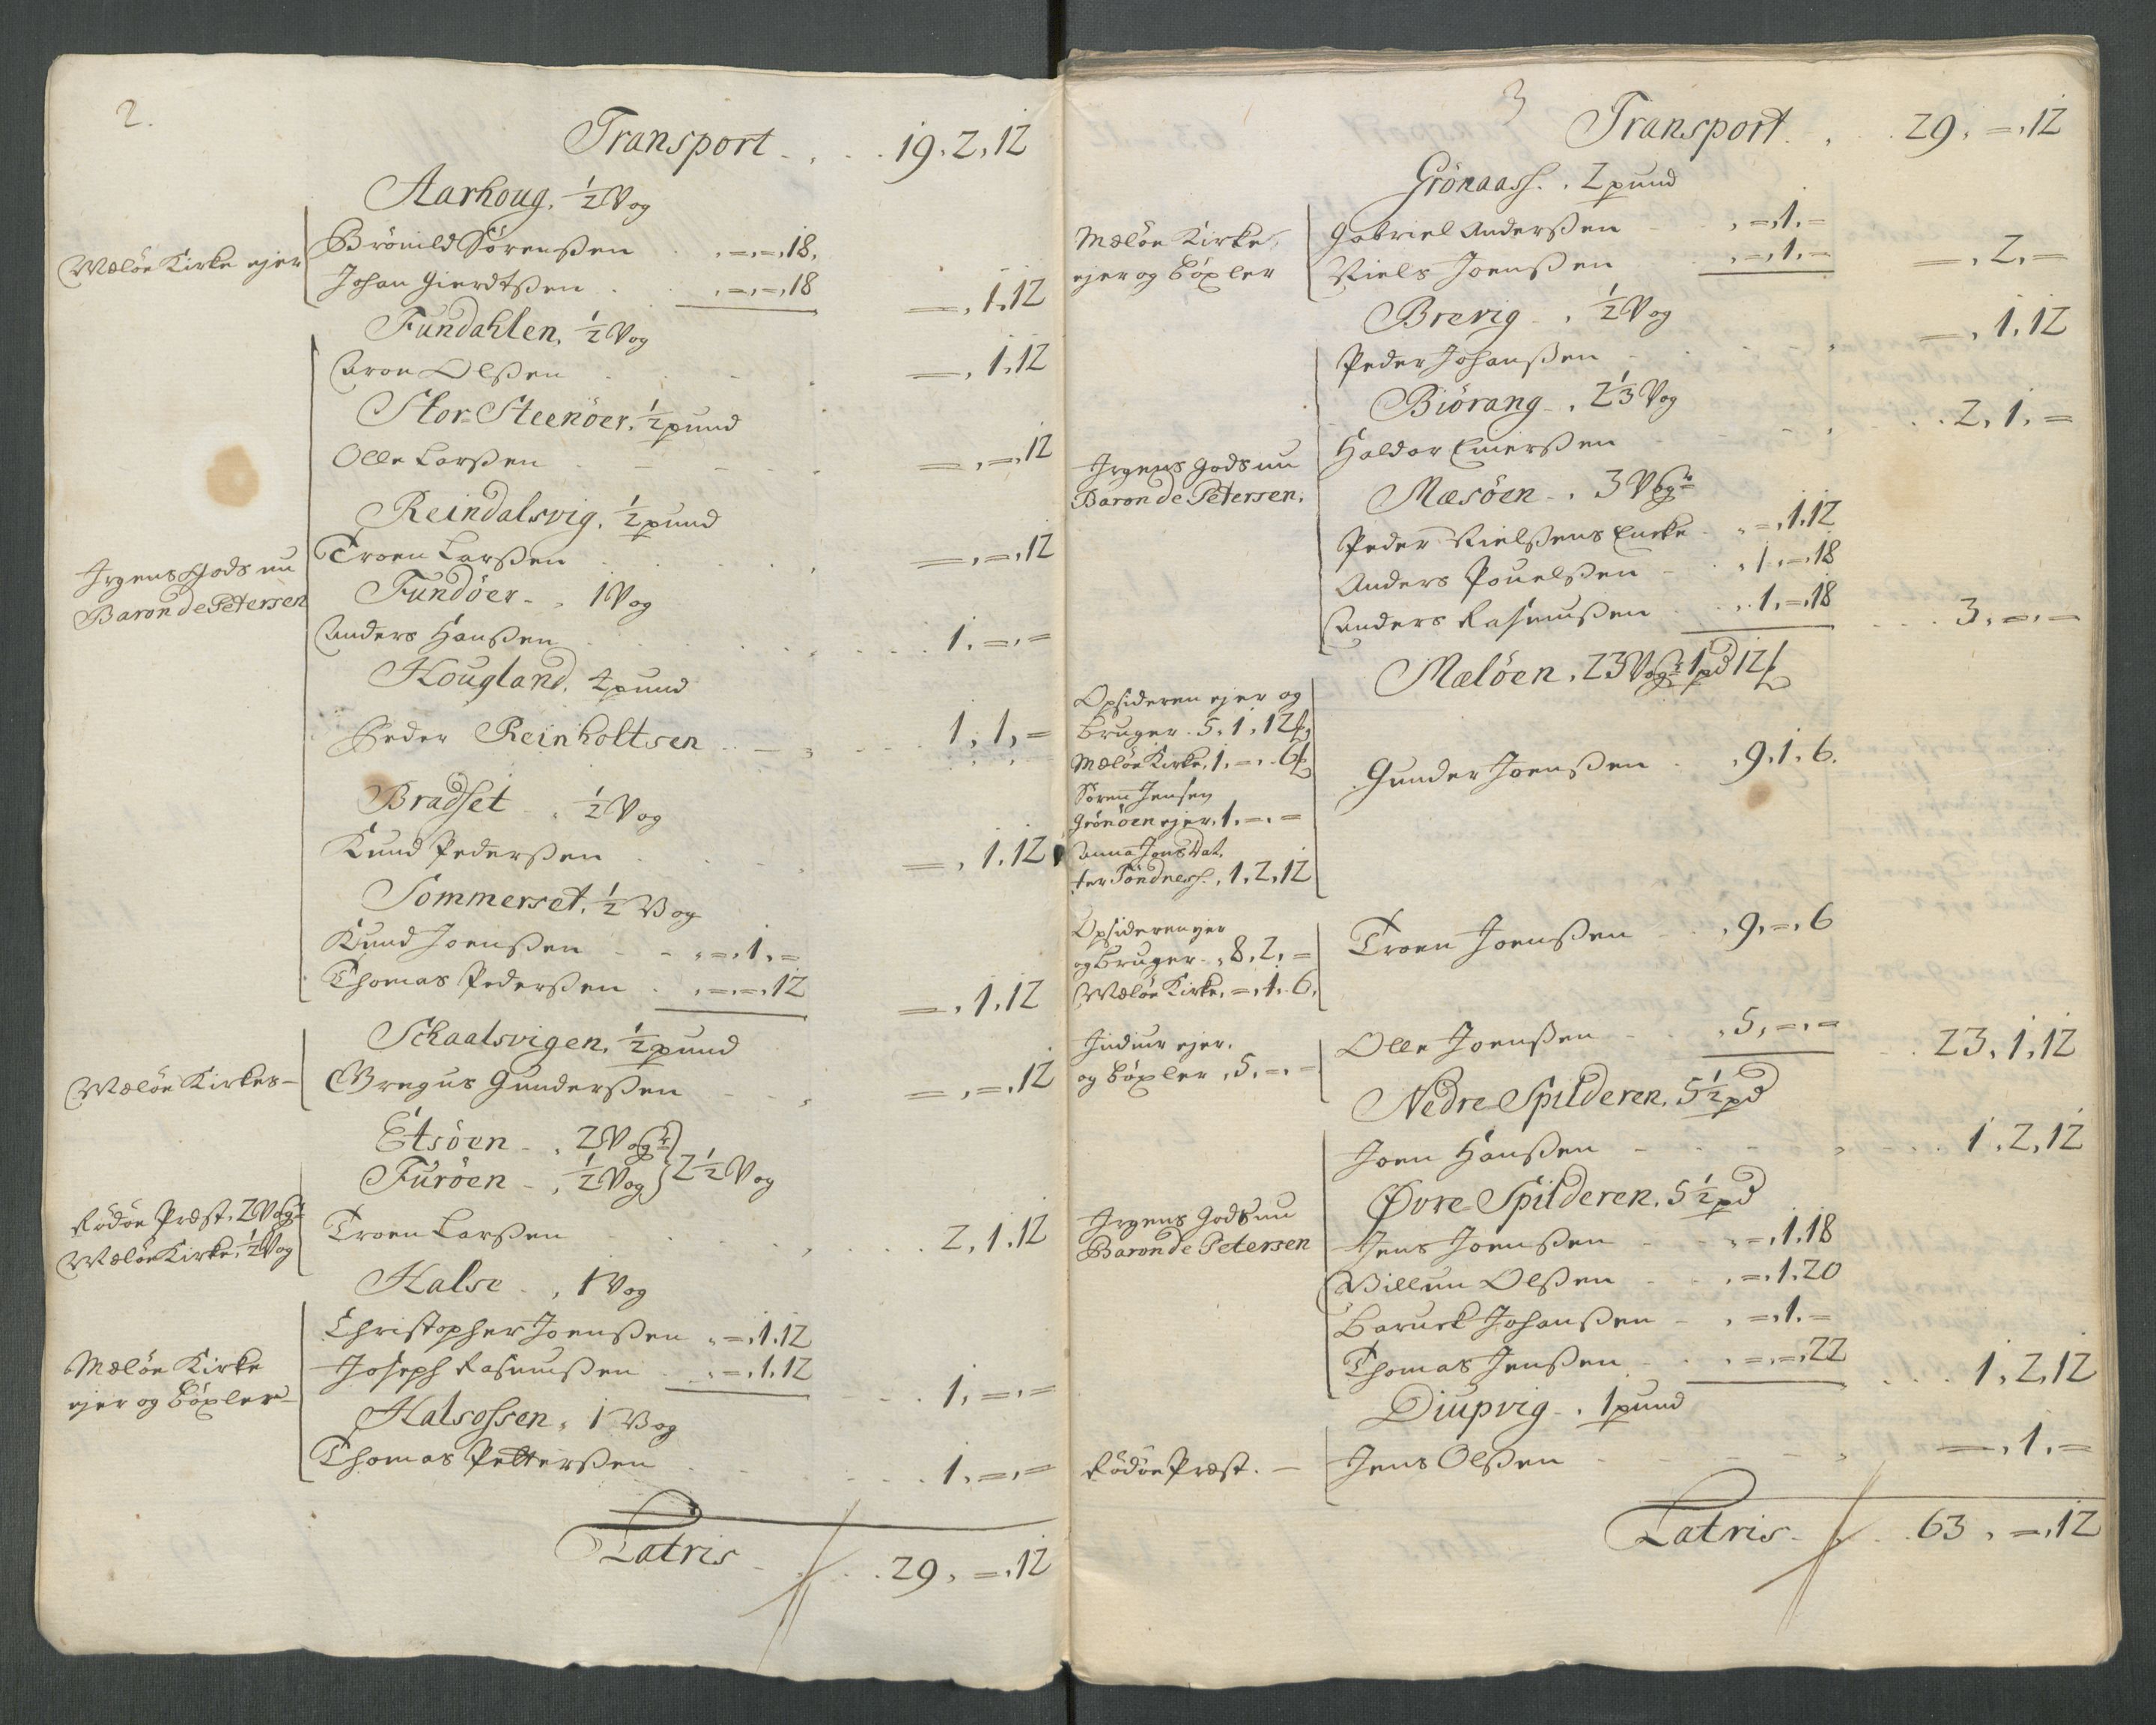 2.
Transport . . . . 19. 2. 12
Aarhoug, ½ Vog
Mæløe Kirke ejer
Brönild Sörenßen . . =. =. 18.
Johan Gierdtßen . . =. =. 18
=. 1. 12
Fundahlen, ½ Vog
Aron Olßen . . . =. 1. 12
Stor-Steenöer, ½ pund
Olle Larßen . . . =. =. 12
Reindalsvig, ½ pund
Troen Larßen . . . =. =. 12
Irgens Gods nu
Baron de Petersen
Fundöer - . 1 Vog
Anders Hanßen . . . 1. =. =
Hougland, 4 pund
Peder Reinholtsen . . . 1. 1. =
Bradset . ½ Vog
Knud Pederßen . . . =. 1. 12
Sommerset, ½ Vog
Knud Joenßen - - . =. 1. =
Thomas Pederßen . . =. =. 12
=. 1. 12
Schaalsvigen, ½ pund
Mæløe Kirkes -
Gregus Gunderßen . . . =. =. 12
Etsöen - . 2 Vogr
Furöen - . ½ Vog } 2½ Vog
Rødøe Præst, 2 Vogr
Mæløe Kirke, ½ Vog
Troen Larßen . . . 2. 1. 12
Halse . . 1 Vog
Christopher Joenßen . =. 1. 12
Mæløe Kirke
ejer og böxler -
Joseph Rasmußen . . =. 1. 12
1. =. =
Halsossen, 1 Vog
Thomas Petterßen . . . 1. =. =
Latris . . . 29. =. 12
3
Transport . . . 29. =. 12
Grönaass. . 2 pund
Mæløe Kirke,
ejer og böxler
Gabriel Anderßen . =. 1. -
Niels Joenßen . =. 1. -
=. 2. =
Brevig - . ½ Vog
Peder Johanßen . . . =. 1. 12
Biörang - . 2⅓ Vog
Haldor Enerßen . . . 2. 1. =
Irgens Gods nu
Baron de Petersen.
Mæsöen - . 3 Vogr
Peder Nielßens Encke . =. 1. 12
Anders Pouelßen - . 1. =. 18
Anders Rasmußen . . 1. =. 18
3. =. -
Mælöen, 23 Vogr 1 pd 12 ℔
Opsideren ejer og
bruger . 5. 1. 12 ℔,
Mæløe Kirke, 1. =. 6 ℔
Sören Jensen
Grönöen ejer, 1. =. =
Anna Jons Dat.
ter Töndness. , 1. 2. 12
Gunder Joenßen . . 9. 1. 6.
Opsideren ejer
og bruger - . 8. 2. =
Mæløe Kirke, =. 1. 6.
Troen Joenßen . . 9. =. 6
Indiur ejer.
og böxler , 5. =. =
Olle Joenßen . . 5. =. =
23. 1. 12
Nedre Spilderen, 5½ pd
Joen Hanßen . . . 1. 2. 12
Øvre Spilderen, 5½ pd
Irgens Gods nu
Baron de Petersen
Jens Joenßen . . =. 1. 18
Villum Olßen . . =. 1. 20
Baruck Johanßen - . =. 1. -
Thomas Jenßen . . =. =. 22
1. 2. 12
Diupvig - . 1 pund
Rødøe Præst. -
Jens Olßen . . . =. 1. =
Latris . . . 63. =. 12